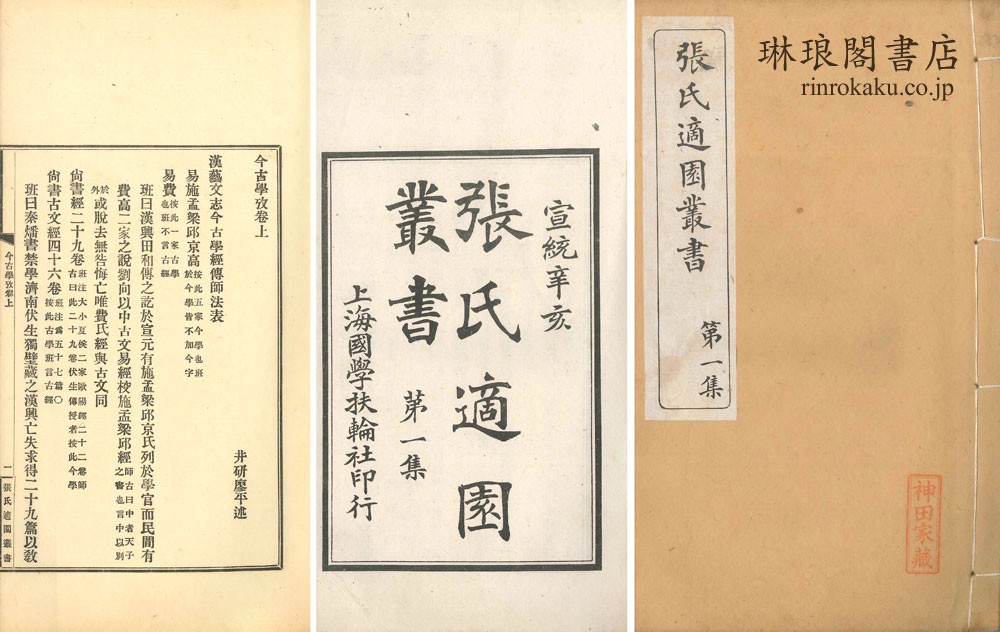 今古學攷卷上
井研廖平述
漢藝文志今古學經傳師法表
易施孟梁邱京高按此五家今學也班於今學皆不加今字
易費按此一家古學也班不言古經
班曰漢興田和傳之訖於宣元有施孟梁邱京氏列於學官而民間有
費高二家之說劉向以中古文易經校施孟梁邱經師古曰中者天子之書也言中以別
於外或脫去無咎悔亡唯費氏經與古文同
尙書經二十九卷班注大小夏侯二家歐陽經二十二卷師古曰此二十九卷伏生傳授者按此今學
尙書古文經四十六卷班注爲五十七篇〇按此古學班言古經
班曰秦燔書禁學濟南伏生獨壁藏之漢興亡失求得二十九篇以敎
今古學攷卷上
二
張氏適園叢書
宣統辛亥
張氏適園
叢書 第一集
上海國學扶輪社印行
琳琅閣書店
rinrokaku.co.jp
張氏適園叢書
第一集
神田家藏